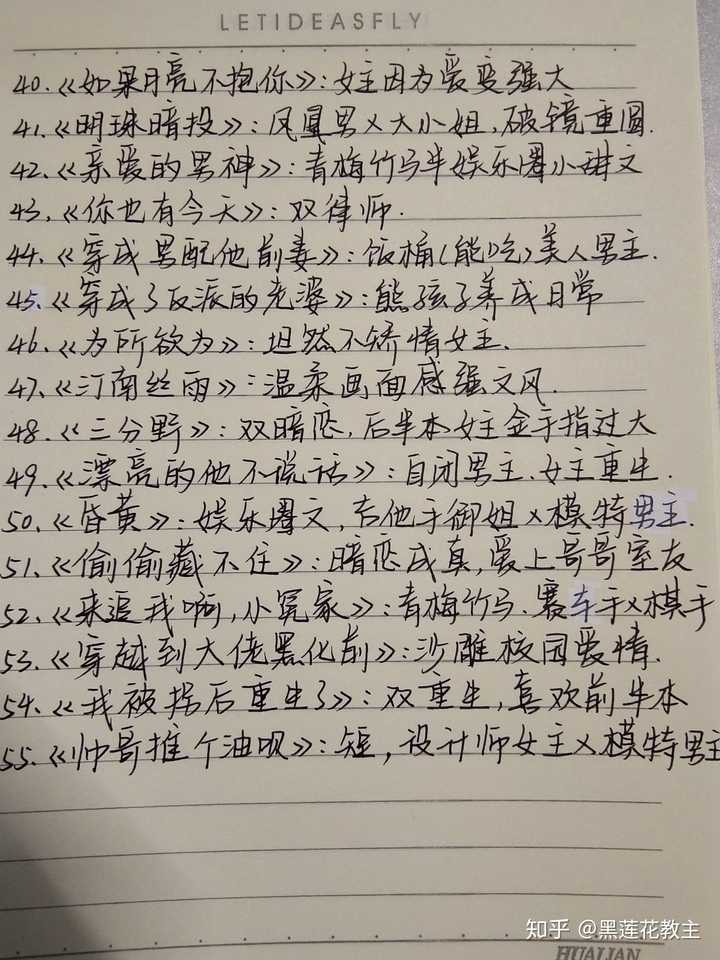 LETIDEASFLY
40.《如果月亮不抱你》:女主因为爱变强大
41.《明珠暗投》:凤凰男×大小姐,破镜重圆.
42.《亲爱的男神》:青梅竹马半娱乐圈小甜文
43.《你也有今天》:双律师.
44.《穿成男配他前妻》:饭桶(能吃)美人男主.
45.《穿成了反派的老婆》:熊孩子养成日常
46.《为所欲为》:坦然不矫情女主.
47.《江南丝雨》:温柔画面感强文风.
48.《三分野》:双暗恋,后半本女主金手指过大
49.《漂亮的他不说话》:自闭男主.女主重生.
50.《昏黄》:娱乐圈文,吉他手御姐×模特男主.
51.《偷偷藏不住》:暗恋成真,爱上哥哥室友
52.《来追我啊,小冤家》:青梅竹马.赛车手×棋手
53.《穿越到大佬黑化前》:沙雕校园爱情.
54.《我被拐后重生了》:双重生,喜欢前半本
55.《帅哥推个油呗》:短,设计师女主×模特男主
知乎 @黑莲花教主
HUALIAN